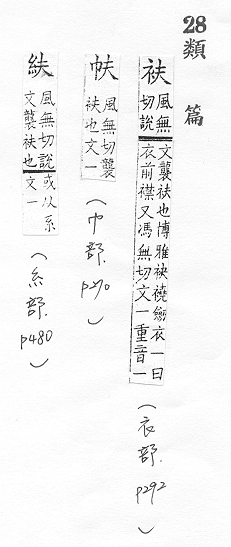 28 類篇
衭 風無切說文襲衭也博雅袂襓劒衣一曰衣前襟又馮無切文一重音一 (衣部. p292)
風無切襲衭也文一 (巾部. p270)
風無切說文襲衭也或从糸文一 (糸部. p480)